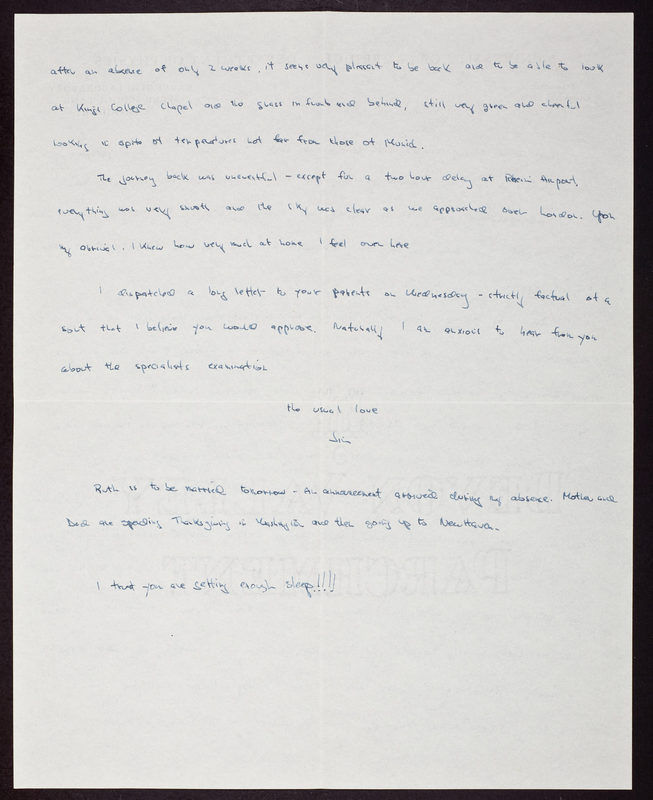 after an absence of only 2 weeks, it seems very pleasant to be back and to be able to look
at Kings College Chapel and the grass in front and behind, still very green and cheerful
looking in spite of temperatures not far from those of Munich.
The journey back was uneventful - except for a two hour delay at Airport,
everything was very smooth and the sky was clear as we approached over London. Upon
my arrival, I knew how very much at home I feel over here
I dispatched a long letter to your parents on Wednesday - strictly factual of a
sort that I believe you would approve. Naturally I am anxious to hear from you
about the specialists examination
the usual love
Jim
Ruth is to be married tomorrow - An announcement arrived during my absence. Mother and
Dad are spending Thanksgiving in Washington and then going up to New Haven.
I trust you are getting enough sleep!!!!
PARCHMENT